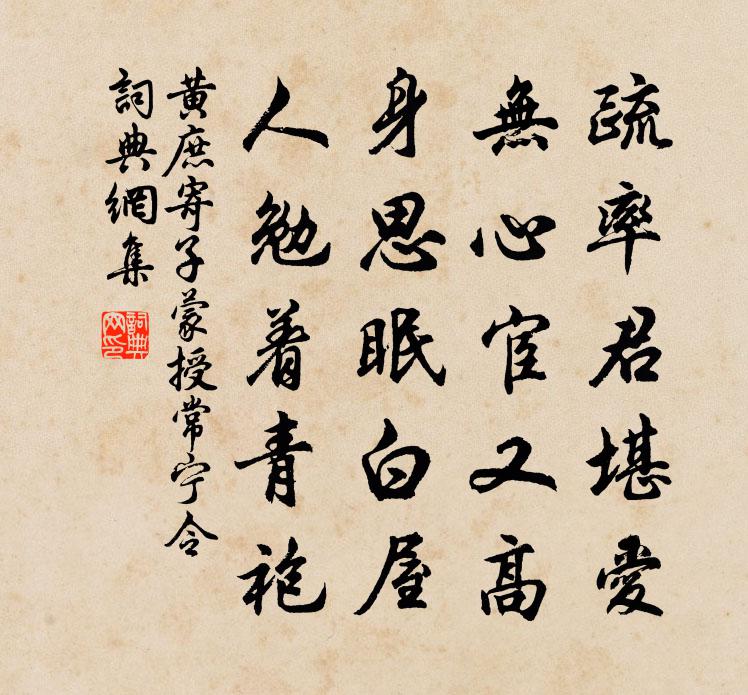 疏率君堪愛
無心宦又高
身思眠白屋
人勉着青袍
黃庶寄子蒙授常宁令
詞典網集
詞典網印